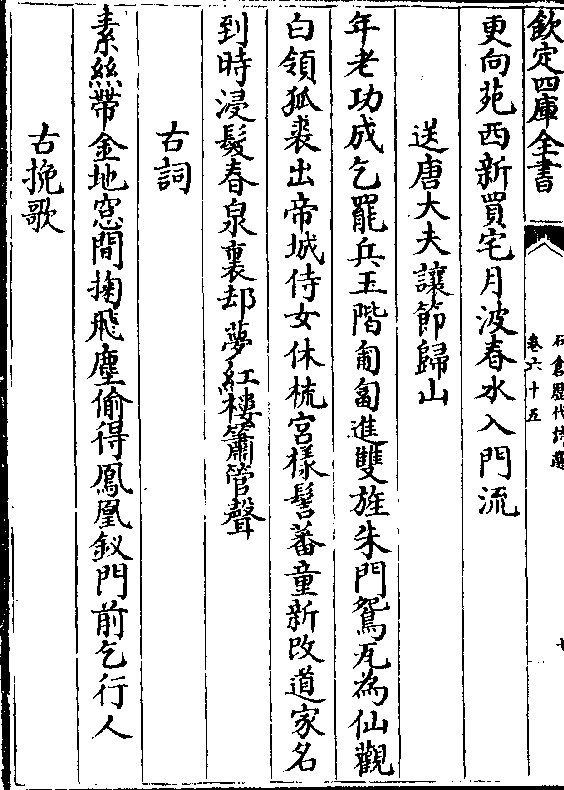 欽定四庫全書
石倉歷代詩選
卷六十五
更向苑西新買宅月波春水入門流
送唐大夫讓節歸山
年老功成乞罷兵玉階匍匐進雙旌朱門鴛瓦為仙觀
白領狐裘出帝城侍女休梳宮樣髻蕃童新改道家名
到時浸髮春泉裏却夢紅樓簫管聲
古詞
素絲帶金地窓間掬飛塵偷得鳳凰釵門前乞行人
古挽歌